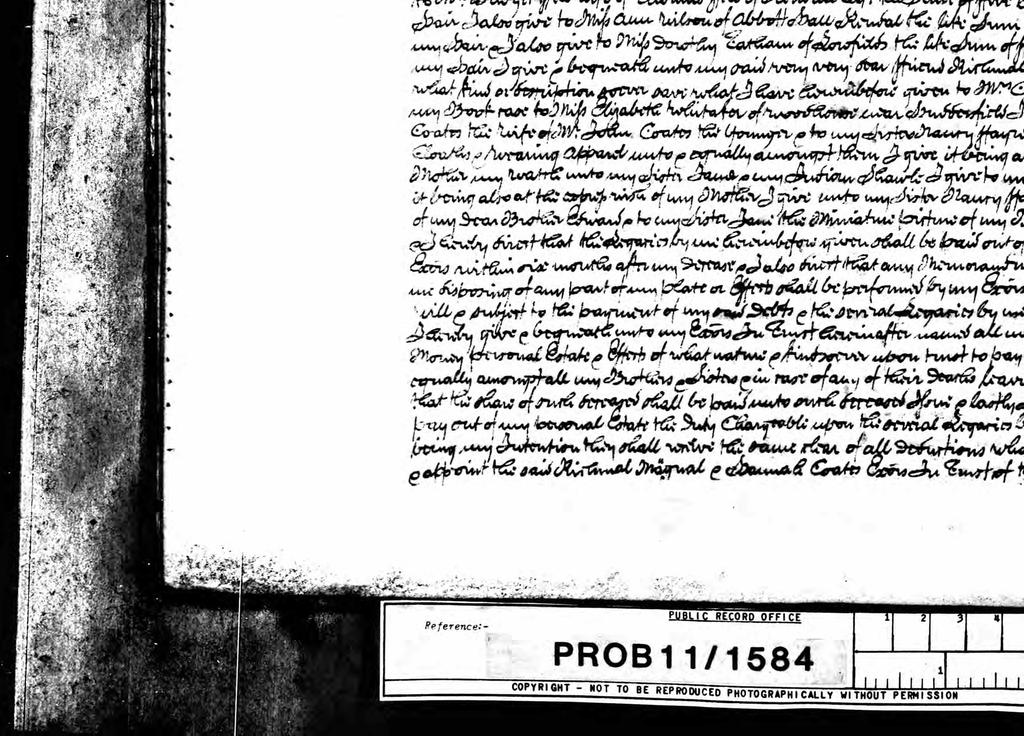 Hair I also give to Miss Ann Wilson of Abbott Hall Kendal the like Sum
my Hair & I also give to Miss Dorothy Latham of the like Sum of
my Hair I give & bequeath unto my said very very dear ffriend Richmal
what kind or description soever save what I have hereinbefore given to Mrs C
my Book case to Miss Elizabeth Whitator of Woodhouse near Hudderffield I
Coates the wife of Mr John Coates the Younger & to my Sister Nancy
Cloaths & Wearing Apparel unto & equally amongst them I give it being a
Mother my Watch unto my Sister Jane & my Indian Shawle I give to my
it being also at the express wish of my Mother I give unto my Sister Nancy
of my Dear Brother Edward & to my Sister Jane the Miniature picture of my
& I hereby direct that the Legacies by me hereinbefore given shall be paid out of
Exors within six months after my decease & I also direct that any Memorandum
me disposing of any part of my plate or Effects shall be performed by my Exors
will & subject to the payment of my said Debts & the several Legacies by me
I hereby give & bequeath unto my Exors In Trust hereinafter named all my
Money personal Estate & Effects of what nature & kindsoever upon trust to pay
equally amongst all my Brothers & Sisters & in case of any of their Deaths leav
that the share of such deceased shall be paid unto such deceased & lastly
pay out of my personal Estate the Duty Chargeable upon the several Legacies
being my Intention they shall receive the same clear of all deductions wha
& appoint the said Richmal Magnal & Hannah Coates Exors In Trust of
Reference:-
PUBLIC RECORD OFFICE
1 2 3 4
PROB 11/1584
1
COPYRIGHT - NOT TO BE REPRODUCED PHOTOGRAPHICALLY WITHOUT PERMISSION